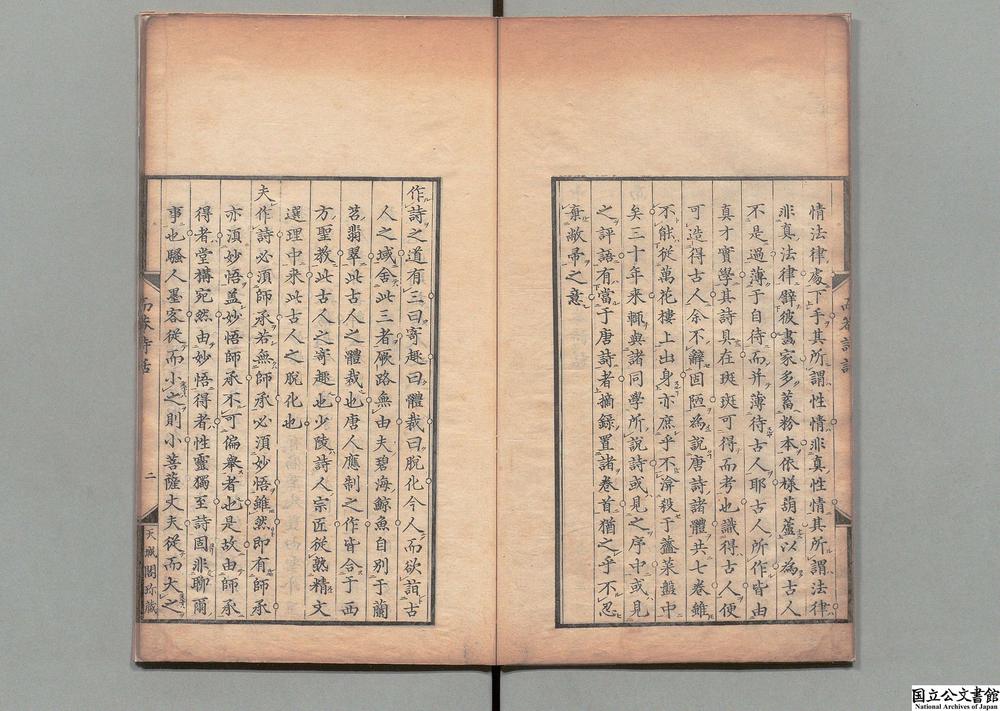 情法律處下手其所謂性情非真性情其所謂法律
非真法律譬彼畫家多蓄粉本依樣葫蘆以為古人
不是過薄于自待而并薄待古人耶古人所作皆由
真才實學其詩具在斑斑可得而考也識得古人便
可造得古人余不辭固陋為說唐詩諸體共七卷雖
不能從萬花樓上出身亦庶乎不渰殺于虀菜盤中
矣三十年來輒與諸同學所說詩或見之序中或見
之評語有當于唐詩者摘錄置諸卷首猶之乎不忍
棄敝帚之意
作詩之道有三曰寄趣曰體裁曰脫化今人而欲詣古
人之域舍此三者厥路無由夫碧海鯨魚自別于蘭
苕翡翠此古人之體裁也唐人應制之作皆合于西
方聖教此古人之寄趣也少陵詩人宗匠從熟精文
選理中來此古人之脫化也
夫作詩必須師承若無師承必須妙悟雖然即有師承
亦須妙悟盖妙悟師承不可偏舉者也是故由師承
得者堂構宛然由妙悟得者性靈獨至詩固非聊爾
事也騷人墨客從而小之則小菩薩丈夫從而大之
而菴詩話
二
天城閣珍藏
国立公文書館
National Archives of Japan